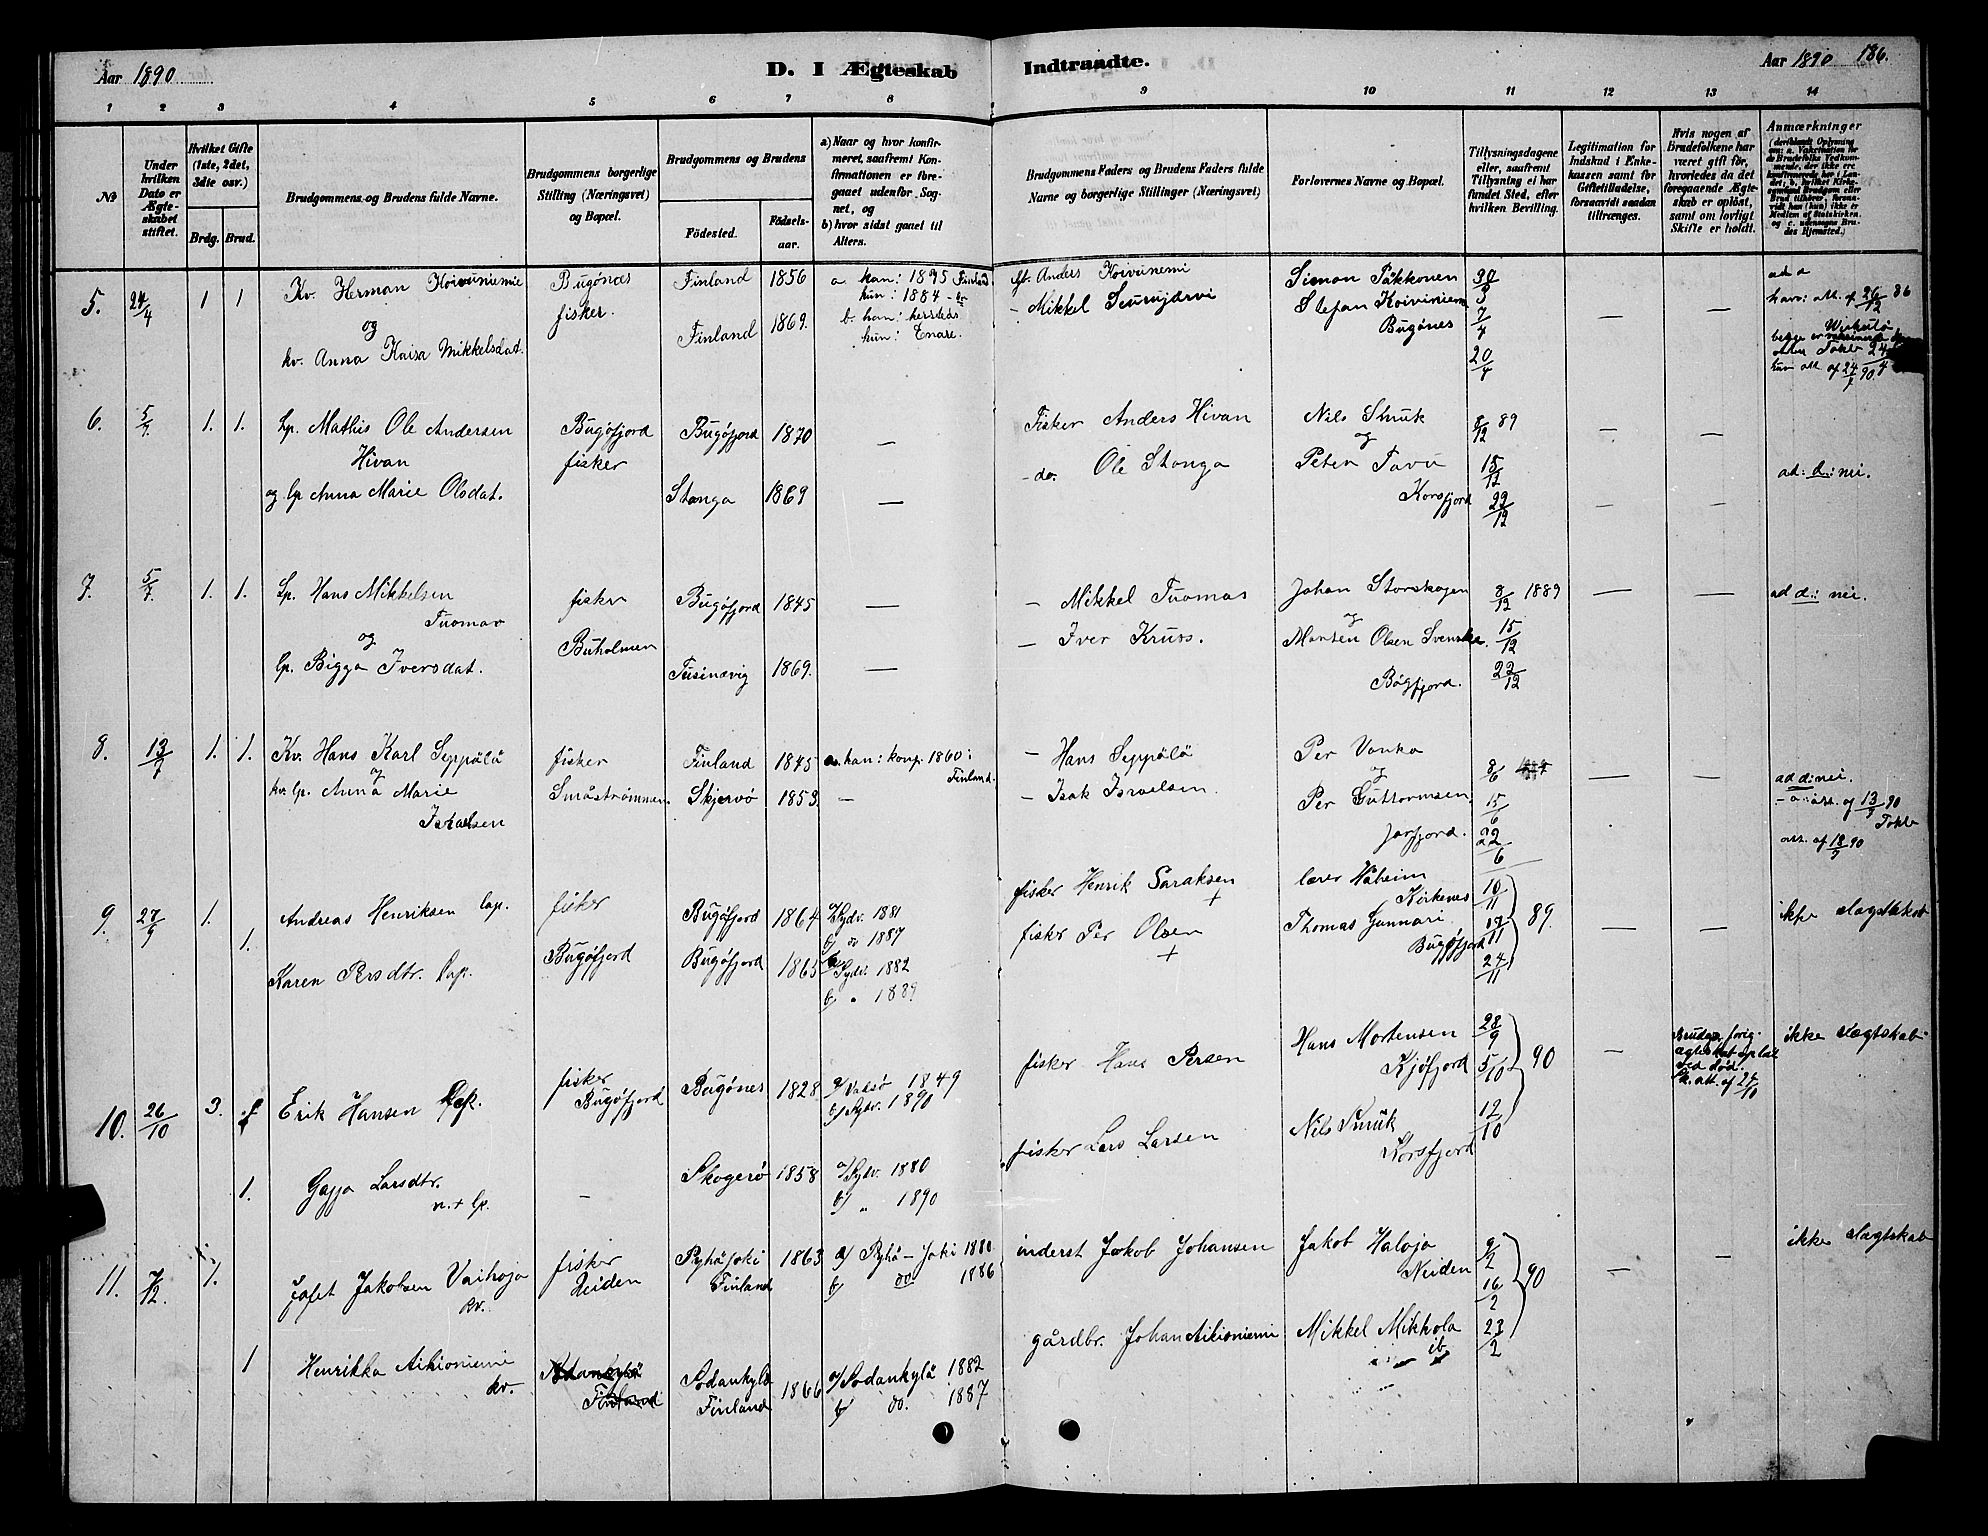 Aar 1890
D. I Ægteskab Indtraadte.
Aar 1890 186.
1 2 3 4 5 6 7 8 9 10 11 12 13 14
№
Under hvilken Dato er Ægteskabet stiftet.
Hvilket Gifte (1ste, 2det, 3die osv.)
Brdg. Brud.
Brudgommens og Brudens fulde Navne.
Brudgommens borgerlige Stilling (Næringsvei) og Bopæl.
Brudgommens og Brudens
Födested. Födselsaar.
a) Naar og hvor konfirmeret, saafremt Konfirmationen er foregaaet udenfor Sognet, og
b) hvor sidst gaaet til Alters.
Brudgommens Faders og Brudens Faders fulde Navne og borgerlige Stillinger (Næringsvei)
Forlovernes Navne og Bopæl.
Tillysningsdagene eller, saafremt Tillysning ei har fundet Sted, efter hvilken Bevilling.
Legitimation for Indskud i Enkekassen samt for Giftetilladelse, forsaavidt saadan tiltrænges.
Hvis nogen af Brudefolkene har været gift för, hvorledes da det foregaaende Ægteskab er oplöst, samt om lovligt Skifte er holdt.
Anmærkninger
5. 24/4 1 1 Kv. Herman Koivuniemie Bugönæs Finland 1856 a han: 1875 Finland
fisker. hun: 1884 - do
og Finland 1869. b. han: hersteds
kv. Anna Kaisa Mikkelsdat. hun: Enare.
Anders Koivunemi Simon Påkkonen 30/3
- Mikkel Seurujærvi Stefan Koiviniem 7/4
Bugönes 20/4
ad a
6. 5/7. 1. 1. Lp. Mathis Ole Andersen Bugöfjord Bugöfjord 1870 —
Hivan fisker
og lp Anna Marie Olsdat. Stonga 1869 —
Fisker Anders Hivan Nils Smuk 8/12 89 — —
og
- do. Ole Stonga Peter Tavu 15/12 ad: d: nei.
Korsfjord 22/12 — —
7. 5/7. 1. 1. Lp. Hans Mikkelsen fisker Bugöfjord 1845 —
Tuomas
og Buholmen
lp. Bigga Iversdat. Tusinævig 1869. —
- Mikkel Tuomas Johan Storskogen 8/12 1889 — — ad d: nei.
og
- Iver Kruss. Morten Olsen Svenske. 15/12
Bögfjord. 22/12
8. 13/7 1. 1. Kv. Hans Karl Seppälä fisker Finland 1845 a. han: konf. 1860: Finland.
og
kv. lp. Anna Marie Småströmmen Skjervö 1853 —
Israelsen
- Hans Seppälä Per Vonka 8/6 — — ad d: nei.
og
- Isak Israelsen. Per Guttormsen 15/6 - a: att. af 13/7 90
Jarfjord. 22/6 att. af 18/7 90
9. 27/9 1. Andreas Henriksen lap. fisker Bugöfjord 1864 a/ Sydv. 1881
b/ do 1887
1. Karen Persdtr. lap. Bugöfjord Bugöfjord 1865 a/ Sydv. 1882
b/ " 1889
fisker Henrik Saraksen + lærer Haheim Kirkenes 10/11
fisker Per Olsen + Thomas Gunnari Bugöfjord 17/11 89. — —
24/11
10. 26/10 3. Erik Hansen lap. fisker Bugöfjord Bugönes 1828 a/ Vadsö 1849
b/ Sydv. 1890
1. Gagja Larsdtr. n. + lp. — Skogerö 1858 a/ Sydv. 1880
b/ " 1890
fisker Hans Persen Hans Mortensen Kjöfjord 28/9 5/10 90 —
fisker Lars Larsen Nils Smuk Korsfjord 12/10
ægteskab oplöst ved död. att. af 24/10
ikke slægtskab
11. 7/12. 1. Jafet Jakobsen Vaihoja kv. fisker Neiden Pyhäjoki Finland 1863 a/ Pyhä-Joki 1880
b/ do 1886
1 Henrikka Aikioniemi kv. Sodankylä Finland Sodankylä Finland 1866 a/ Sodankylä 1882
b/ do. 1887
inderst Jakob Johansen Jakob Haloja Neiden 9/2 16/2 90 — — ikke slagtskab
gårdbr. Johan Aikioniemi Mikkel Mikkola ib. 23/2